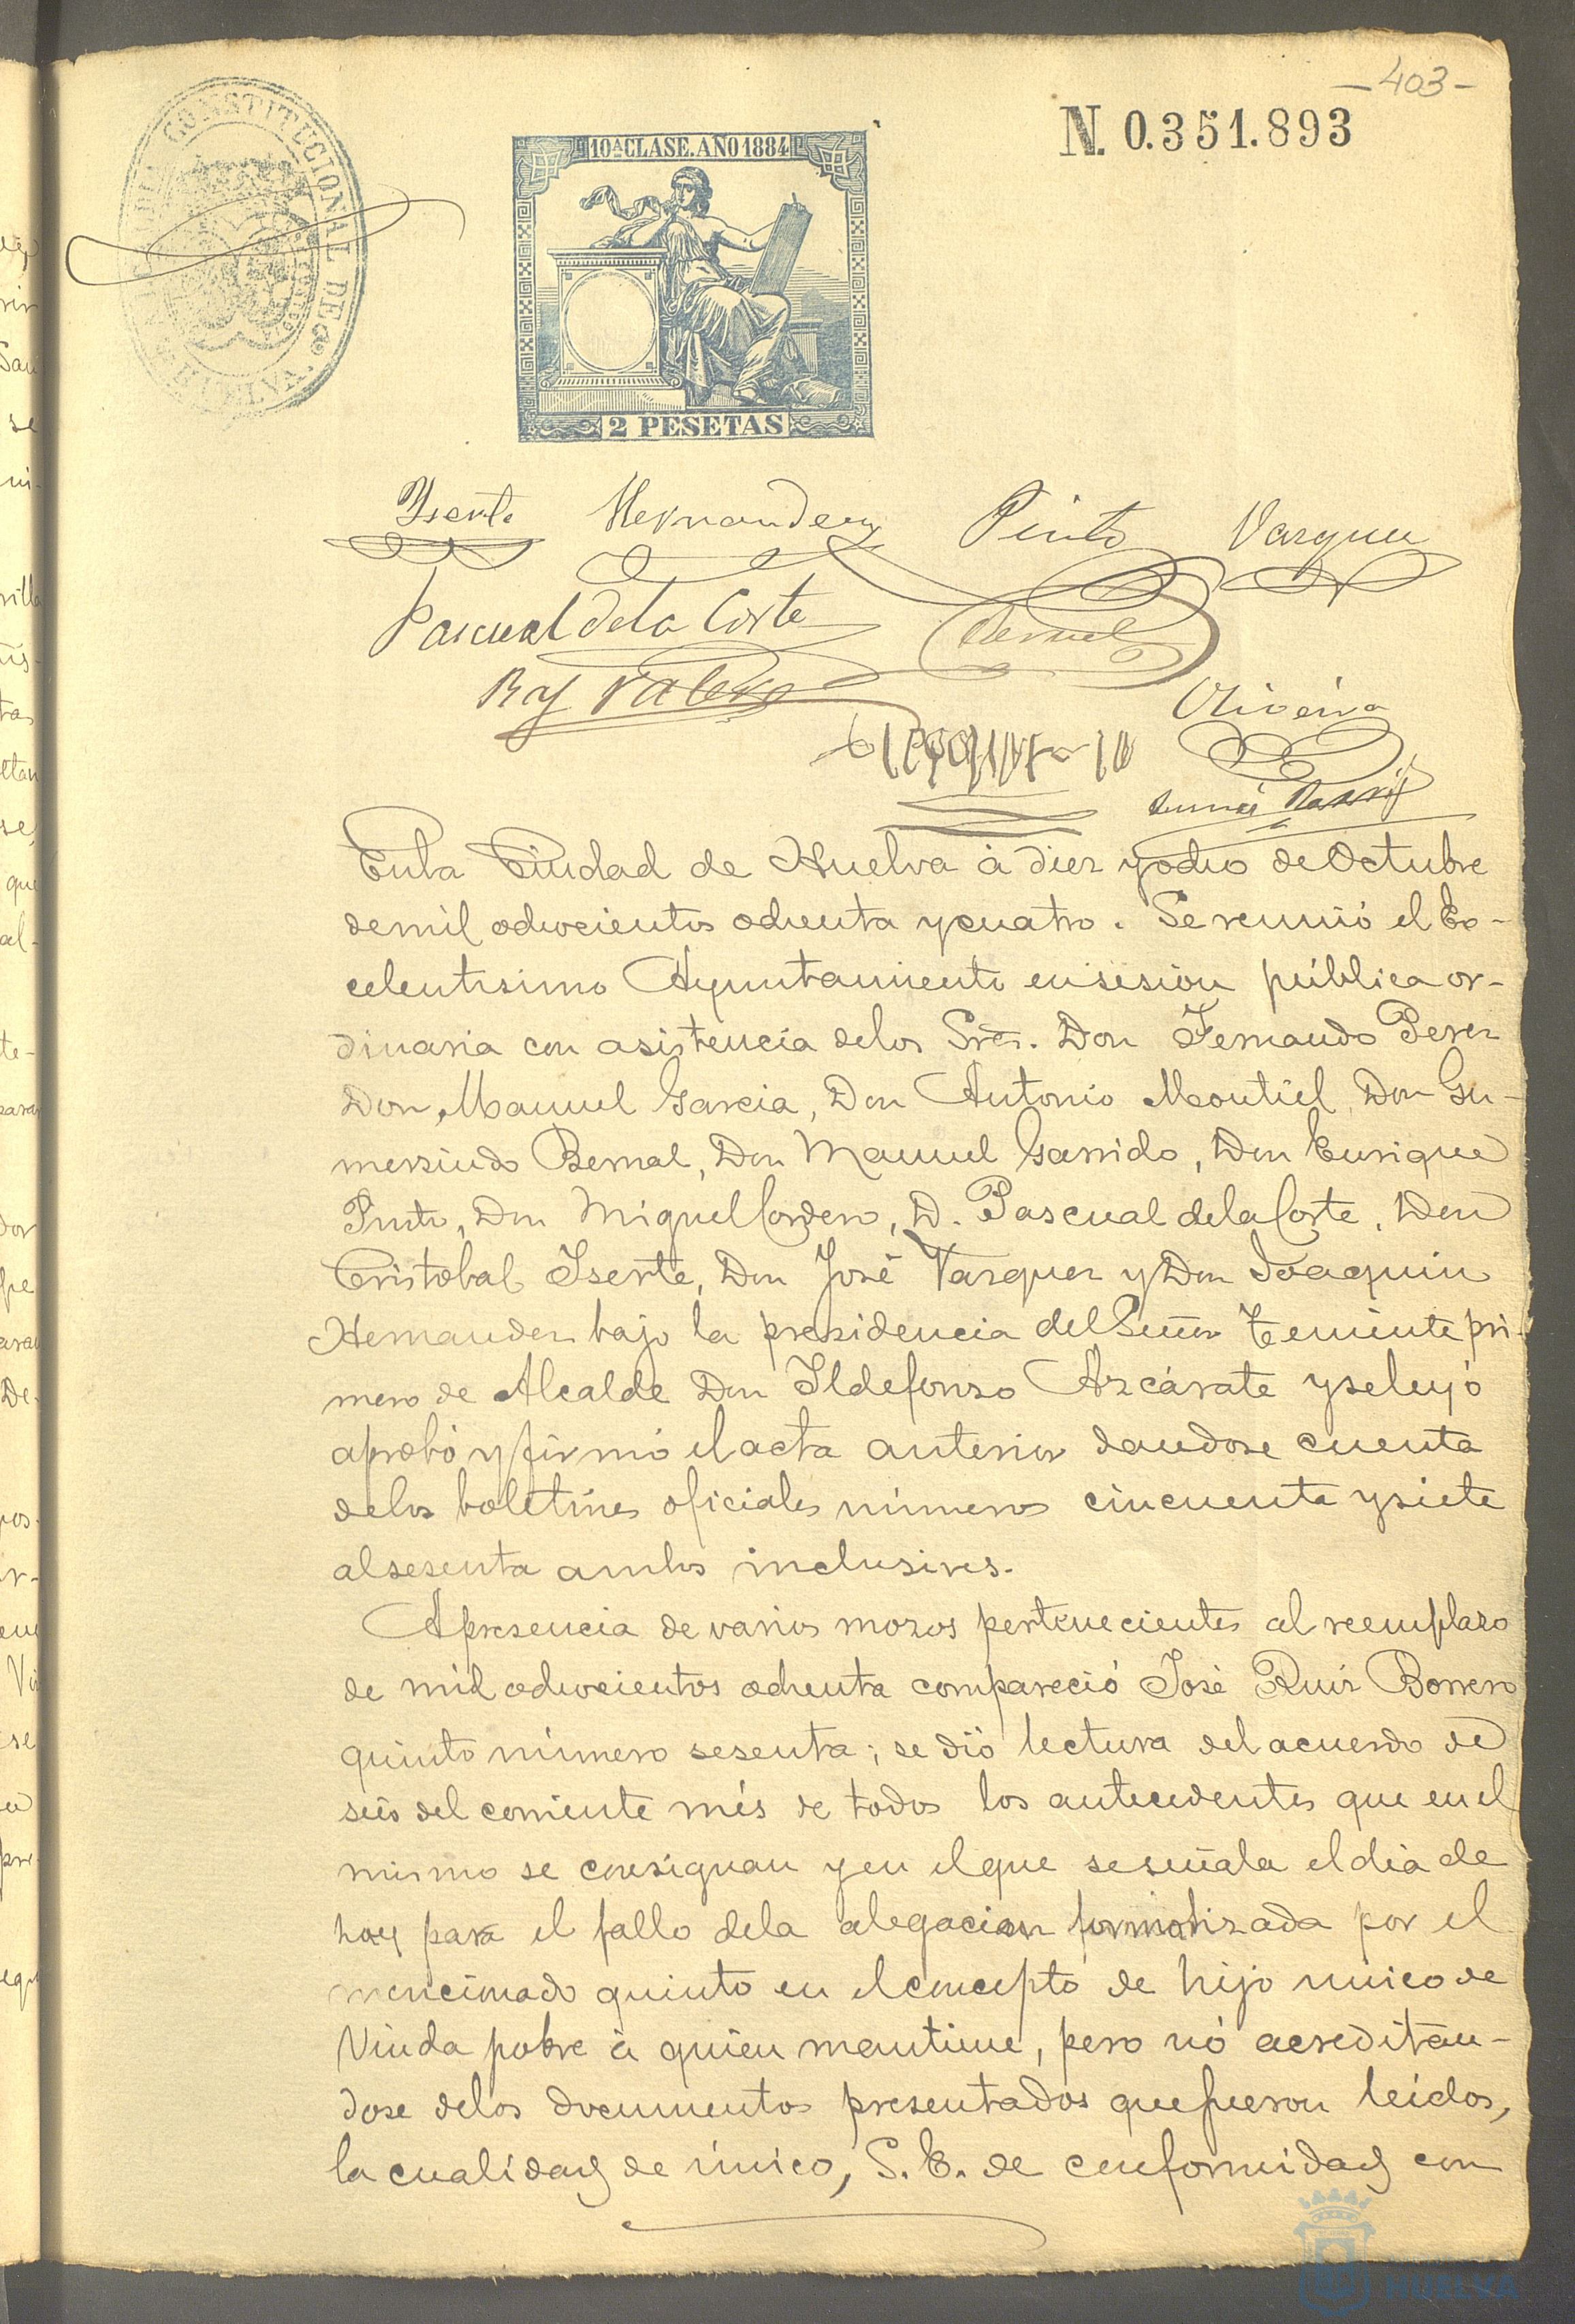 -403-
N. 0.351.893
CONSTITUCIONAL DE
HUELVA
10ª CLASE. AÑO 1884
2 PESETAS
Yserte Hernandez Pinto Vazquez
Pascual de la Corte Bernal
Raf Valero
Oliveira
En la Ciudad de Huelva á diez y ocho de Octubre
de mil ochocientos ochenta y cuatro. Se reunió el Ex-
celentisimo Ayuntamiento en sesion pública or-
dinaria con asistencia de los Sres. Don Fernando Perez
Don Manuel Garcia, Don Antonio Montiel, Don Gu-
mersindo Bernal, Don Manuel Garrido, Don Enrique
Pinto, Don Miguel Cordero, D. Pascual de la Corte, Don
Cristobal Iserte, Don José Vazquez y Don Joaquin
Hernandez bajo la presidencia del Señor Teniente pri-
mero de Alcalde Don Ildefonso Azcárate y se leyó
aprobó y firmó el acta anterior dandose cuenta
de los boletines oficiales números cincuenta y siete
al sesenta ambos inclusives.
A presencia de varios mozos pertenecientes al reemplazo
de mil ochocientos ochenta compareció José Ruiz Borrero
quinto número sesenta; se dió lectura del acuerdo de
seis del corriente més de todos los antecedentes que en el
mismo se consignan y en el que se señala el dia de
hoy para el fallo de la alegacion formalizada por el
mencionado quinto en el concepto de hijo único de
Viuda pobre á quien mantiene, pero nó acreditán-
dose de los documentos presentados que fueron leidos,
la cualidad de único, S. E. de conformidad con
HUELVA